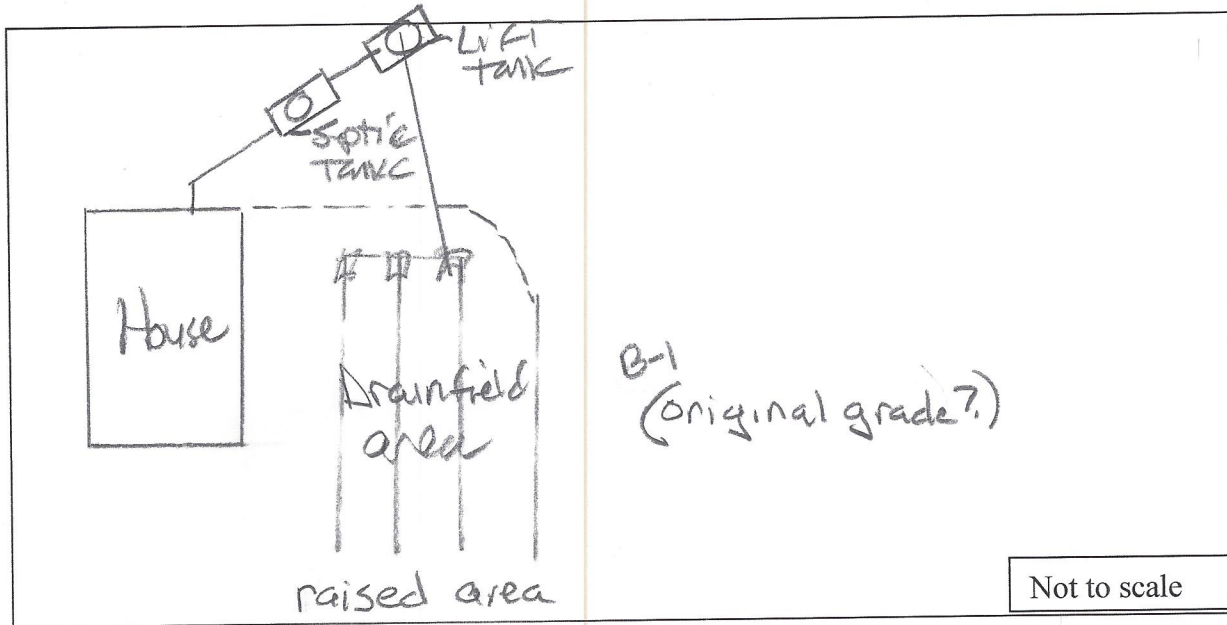 Lift
tank
Septic
Tank
House
Drainfield
area
B-1
(original grade?)
raised area
Not to scale